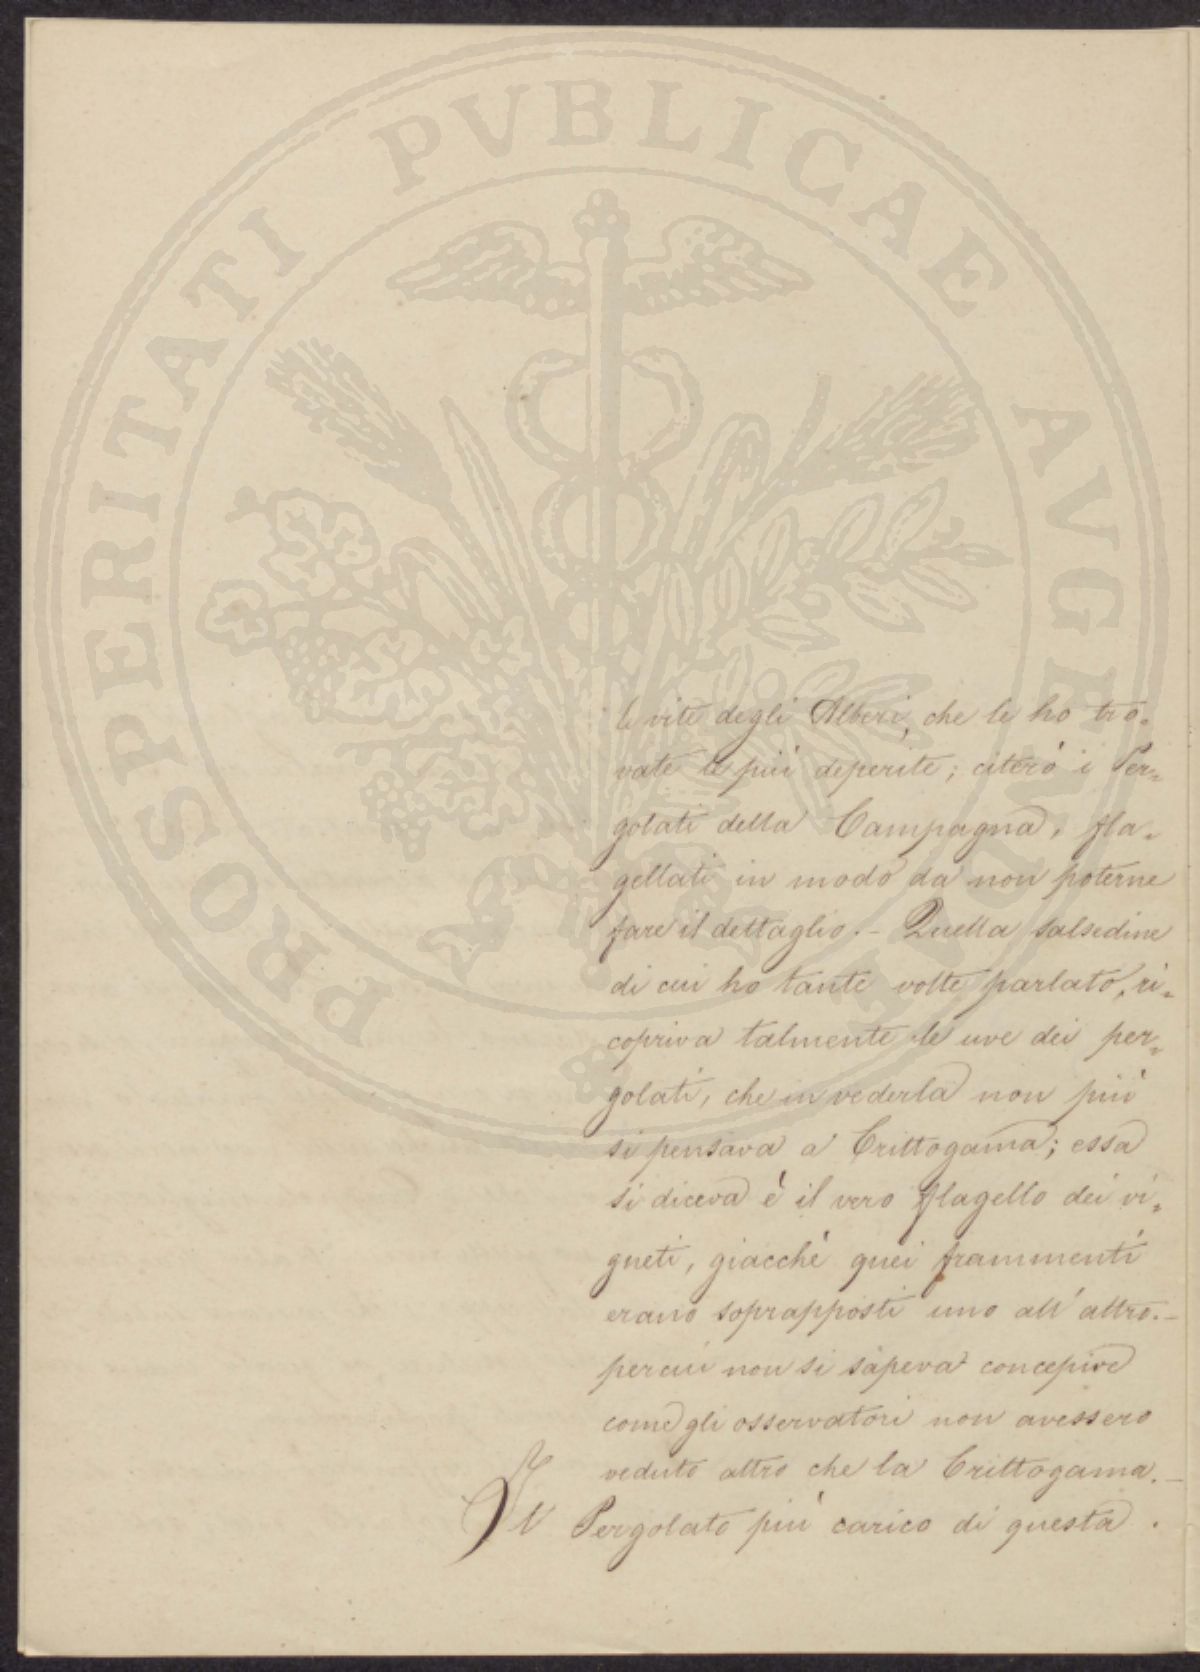 PROSPERITATI PVBLICAE AVGENDAE
le vite degli Alberi, che le ho tro=
vate le più deperite; citerò i Per=
golati della Campagna, fla=
gellati in modo da non poterne
fare il dettaglio. - Quella salsedine
di cui ho tante volte parlato, ri=
copriva talmente le uve dei per=
golati, che in vederla non più
si pensava a Crittogama; essa
si diceva è il vero flagello dei vi=
gneti, giacchè quei frammenti
erano soprapposti uno all'altro. -
per cui non si sapeva concepire
come gli osservatori non avessero
veduto altro che la Crittogama. -
Il Pergolato più carico di questa .